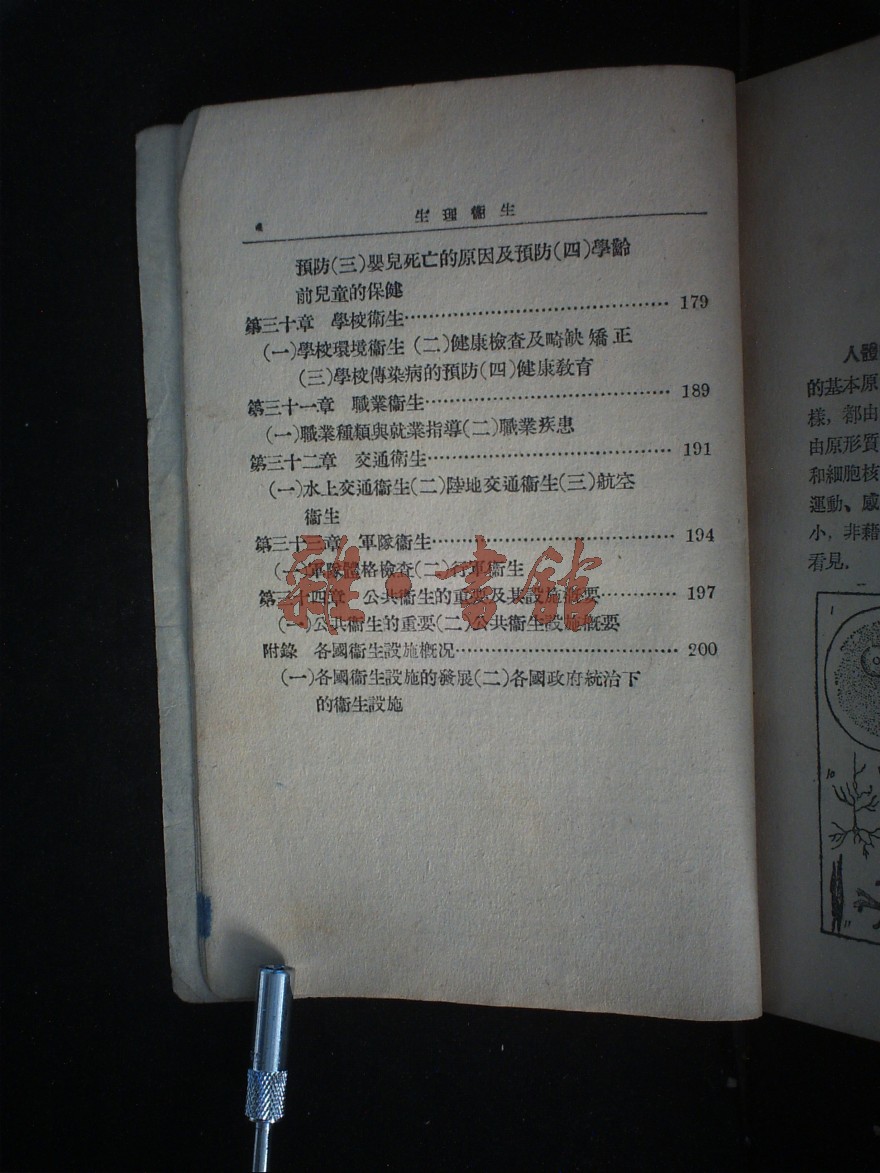 4
生理衞生
預防(三)嬰兒死亡的原因及預防(四)學齡
前兒童的保健
第三十章　學校衞生……………………………… 179
(一)學校環境衞生 (二)健康檢查及畸缺矯正
(三)學校傳染病的預防(四)健康教育
第三十一章　職業衞生…………………………… 189
(一)職業種類與就業指導(二)職業疾患
第三十二章　交通衞生…………………………… 191
(一)水上交通衞生(二)陸地交通衞生(三)航空
衞生
第三十三章　軍隊衞生…………………………… 194
(一)軍隊體格檢查(二)行軍衞生
第三十四章　公共衞生的重要及其設施概要………… 197
(一)公共衞生的重要(二)公共衞生設施概要
附錄　各國衞生設施概况………………………… 200
(一)各國衞生設施的發展(二)各國政府統治下
的衞生設施
雜·書館
人體
的基本原
樣，都由
由原形質
和細胞核
運動、感
小，非藉
看見．
1
10
11